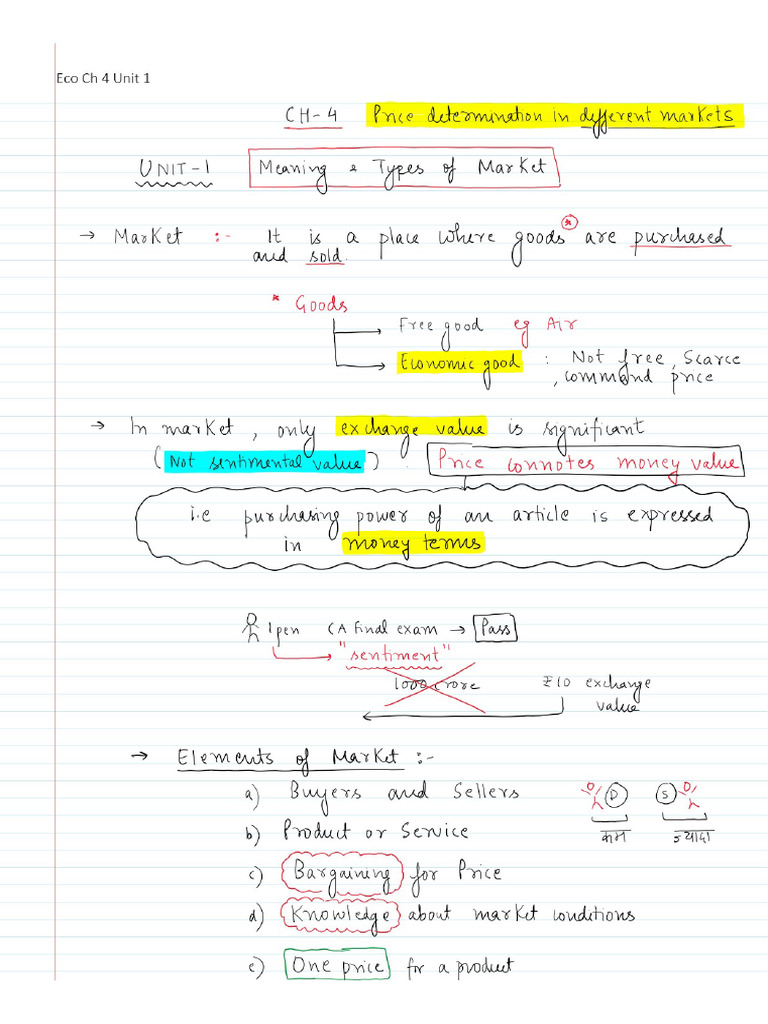 Eco Ch 4 Unit 1
CH-4 Price determination in different markets
UNIT-1 Meaning & Types of Market
→ Market :- It is a place where goods* are purchased
and sold.
* Goods
→ Free good eg Air
→ Economic good : Not free, Scarce
, command price
→ In market, only exchange value is significant
(Not sentimental value). Price connotes money value
i.e purchasing power of an article is expressed
in money terms
1 pen CA final exam → Pass
"sentiment"
1000 crore ₹10 exchange
value
→ Elements of Market :-
a) Buyers and Sellers D S
b) Product or Service कम ज्यादा
c) Bargaining for Price
d) Knowledge about market conditions
e) One price for a product